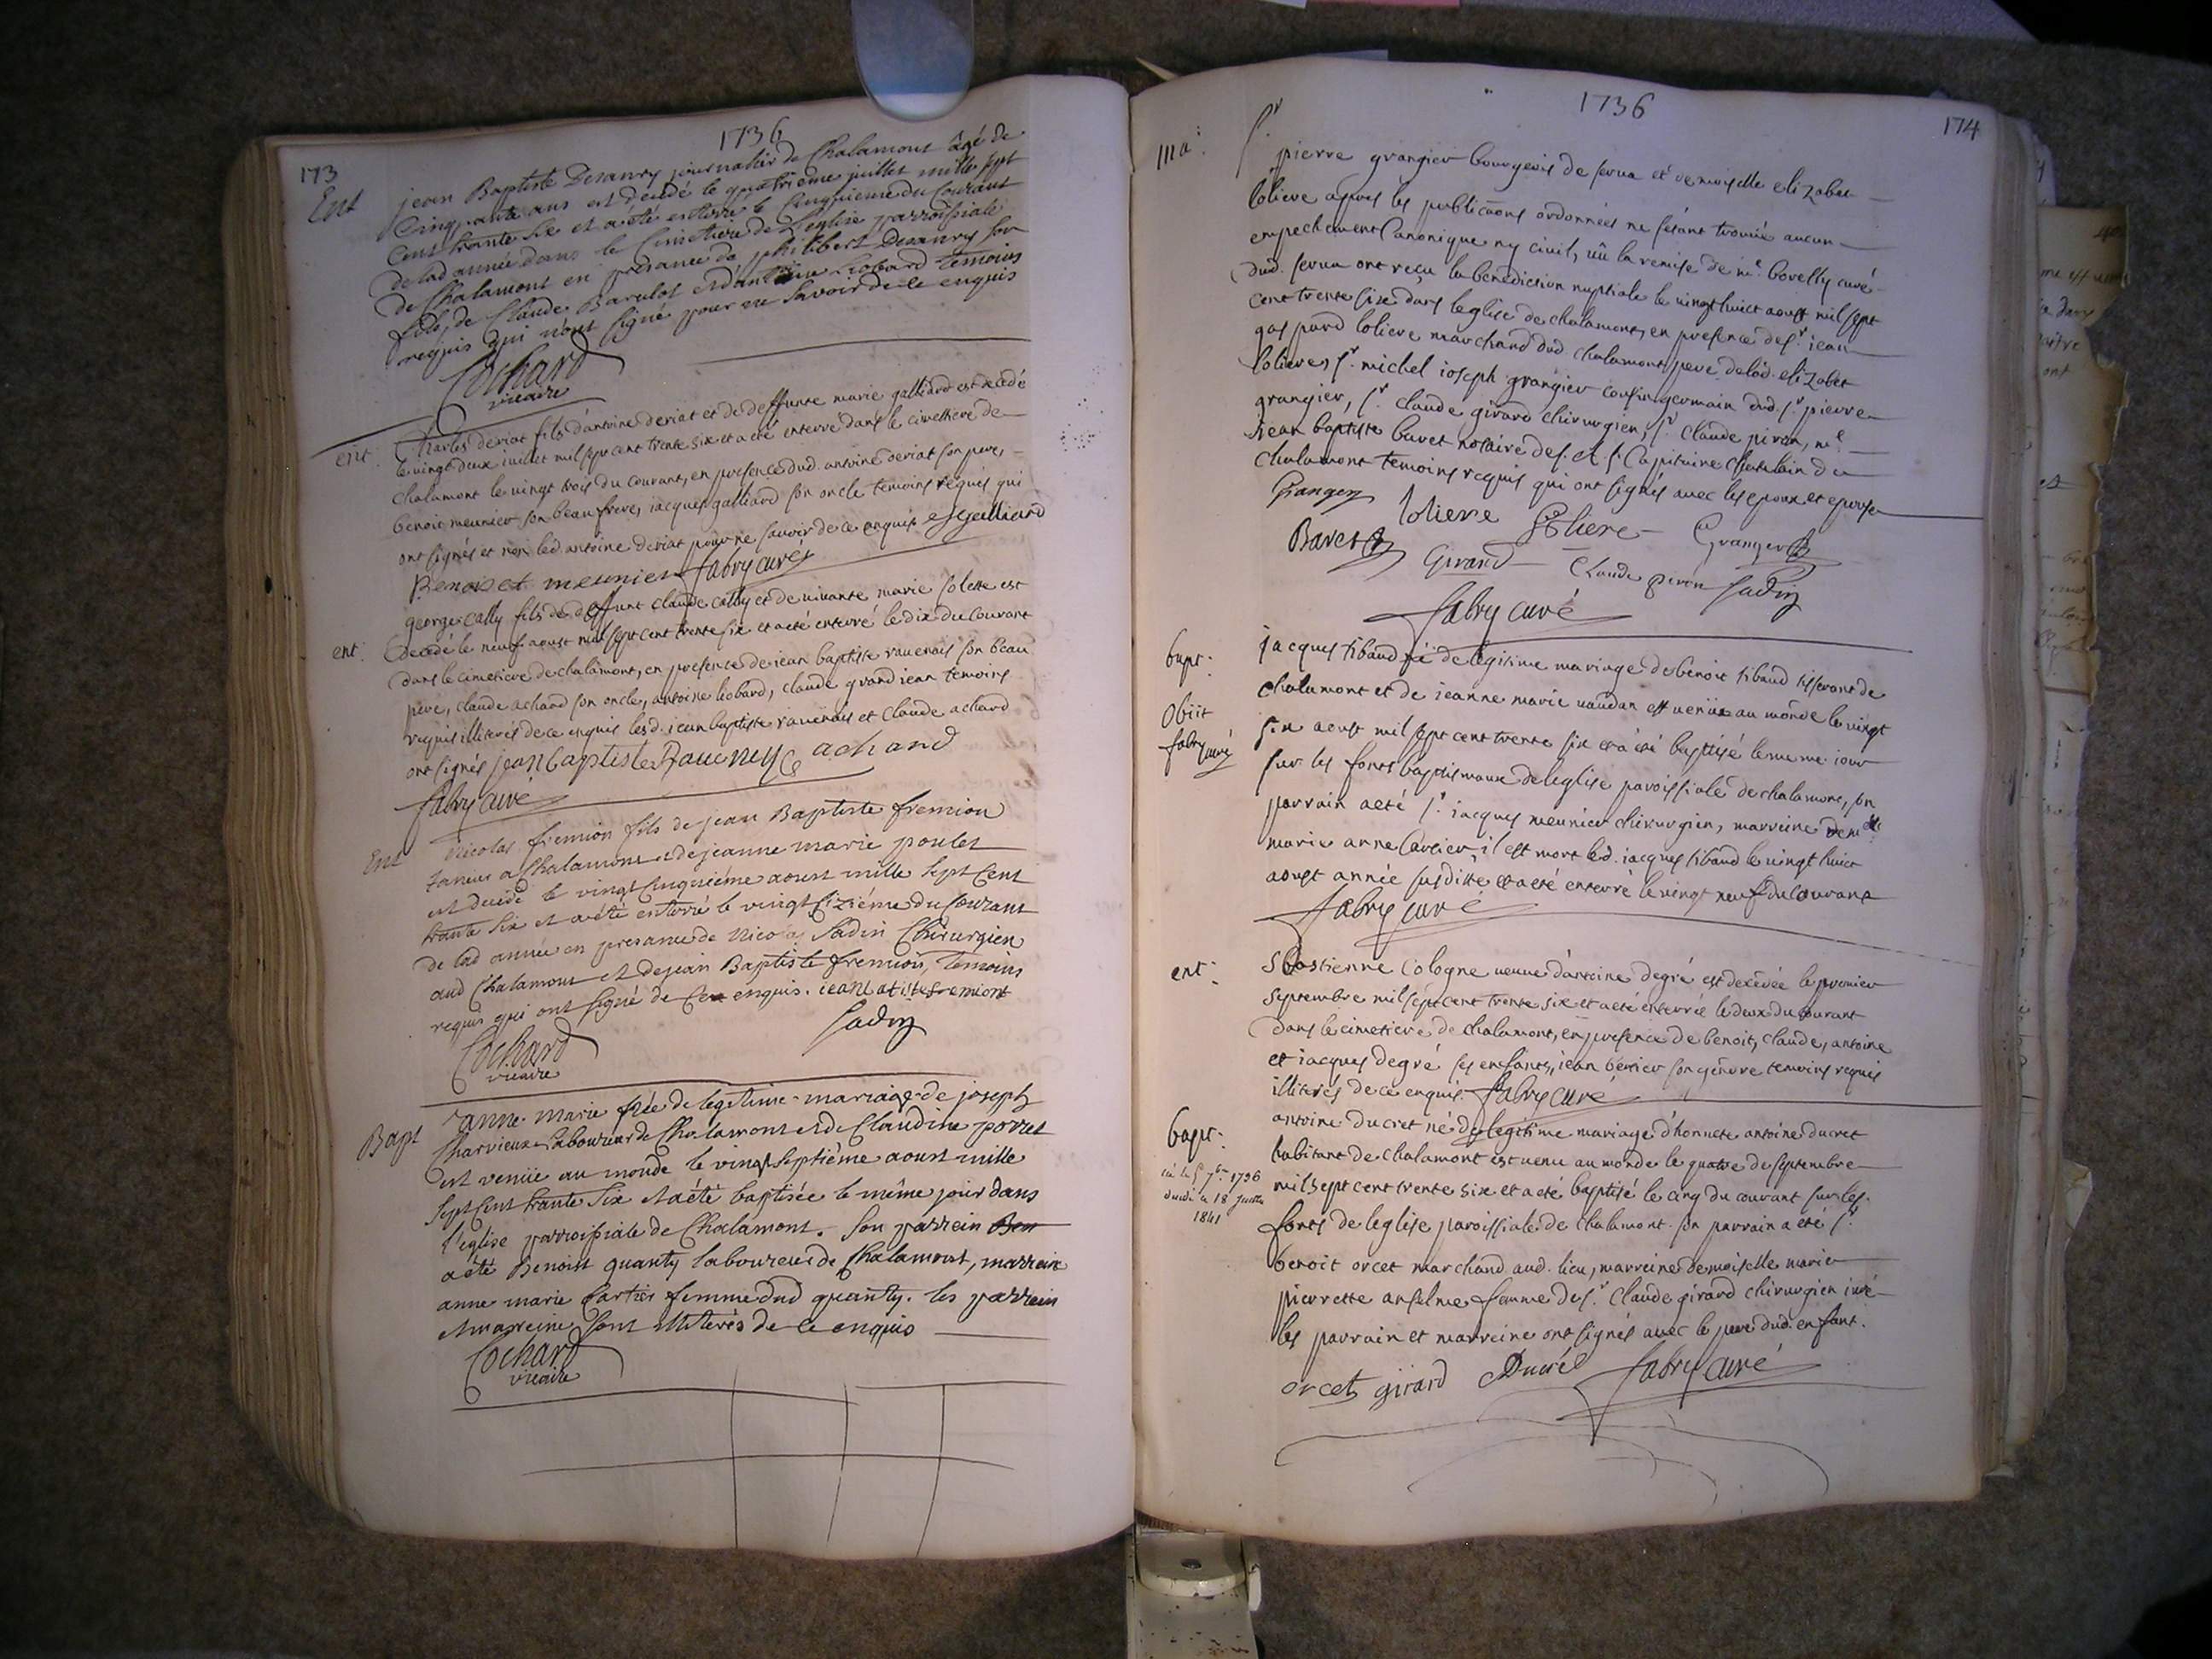 1736
173
Ent
jean Baptiste Desanry journalier de Chalamont âgé de
Cinquante ans est décédé le quatrieme juillet mille sept
Cent trante Six et a été enterré le Cinquieme du Courant
de lad année dans le Cimetiere de L'eglise parroissiale
de Chalamont en presance de philibert Desanry son
fils, de Claude Barulot et d'antoine Liobard temoins
requis qui n'ont signé pour ne savoir de ce enquis
Cochard
vicaire
ent.
Charles deriat fils d'antoine deriat et de deffunte marie galliard est decedé
le vingt deux iuillet mil sept cent trente six et a eté enterré dans le cimettiere de
chalamont le vingt trois du courant, en presence dud. antoine deriat son pere,
benoit meunier son beau frere, iacques galliard son oncle temoins requis qui
ont signés et non led. antoine deriat pour ne savoir de ce enquis Galliard
Benoist meunier fabry curé
ent.
george cally fils de deffunt claude cally et de vivante marie solette est
decedé le neuf aoust mil sept cent trente six et a eté enterré le dix du courant
dans le cimetiere de chalamont, en presence de iean baptiste ravenais son beau
pere, claude achard son oncle, antoine liobard, claude grandiean temoins
requis illiterés de ce enquis lesd. iean baptiste ravenais et claude achard
ont signés jean Baptiste C achard
fabry curé
Ent
Nicolas fremion fils de jean Baptiste fremion
taneur a Chalamont et de jeanne marie poulet
est decedé le vingt Cinquiéme aoust mille Sept Cent
trante Six et a été enterré le vingt Siziéme du Courant
de lad année en presance de Nicolas Sadin Chirurgien
aud Chalamont et de jean Baptiste fremion, temoins
requis qui ont signé de ce enquis. iean batiste fremiont
Cochard
vicaire
Sadin
Bapt
anne marie née de legitime mariage de joseph
Charvieux Laboureur de Chalamont et de Claudine porret
est venüe au monde le vingt septiéme aoust mille
sept Cent trante Six et a été baptisée le même jour dans
l'eglise parroissiale de Chalamont. Son parrein Ben
a été Benoist quanty laboureur de Chalamont, marreine
anne marie Cartier femme dud quanty. les parrein
et marreine Sont illiterés de ce enquis
Cochard
vicaire
1736
174
ma:
Sr
pierre grangier bourgeois de servas et demoiselle elizabet
loliere apres les publicaons ordonnées ne s'etant trouvé aucun
empechement Canonique ny civil, vû la remise de me. borelly curé
dud. servas ont reçu la benediction nuptiale le vingt huict aoust mil sept
cent trente six dans leglise de chalamont, en presence de sr. iean
gaspard loliere marchand dud chalamont pere de lad. elizabet
loliere, sr. michel ioseph grangier cousin germain dud. sr. pierre
grangier, sr. claude girard chirurgien, sr. claude piron, me.
iean baptiste buret notaire de s. A. s. Capitaine chatelain de
chalamont temoins requis qui ont signés avec les epoux et epouse
Granger loliere loliere Granger
Baret Girard Claude piron Sadin
fabry curé
bapt.
iacques tibaud né de legitime mariage de benoit tibaud tisserant de
chalamont et de ieanne marie vaudan est venu au monde le vingt
six aoust mil sept cent trente six et a eté baptisé le meme iour
sur les fonts baptismaux de leglise paroissiale de chalamont, son
parrain a eté sr. iacques meunier chirurgien, marreine demlle
marie anne Cartier, il est mort led. iacques tibaud le vingt huit
aoust année susditte et a eté enterré le vingt neuf du courant
Obiit
fabry curé
fabry curé
ent.
Sbastienne Cologne veuve d'antoine degré est decedée le premier
septembre mil sept cent trente six et a eté enterrée le deux du courant
dans le cimetiere de chalamont, en presence de benoit, claude, antoine
et iacques degré ses enfants, iean berier son gendre temoins requis
illiterés de ce enquis. fabry curé
bapt.
né le 5 7bre 1736
décédé le 18 Juillet
1811
antoine ducret né de legitime mariage d'honnete antoine ducret
habitant de chalamont est venu au monde le quatre de septembre
mil sept cent trente six et a eté baptisé le cinq du courant sur les
fonts de leglise paroissiale de chalamont. son parrain a eté sr.
benoit orcet marchand aud. lieu, marreine demoiselle marie
pierrette anselme femme de sr. Claude girard chirurgien iuré
les parrain et marreine ont signés avec le pere dud. enfant.
orcet girard Ducret fabry curé